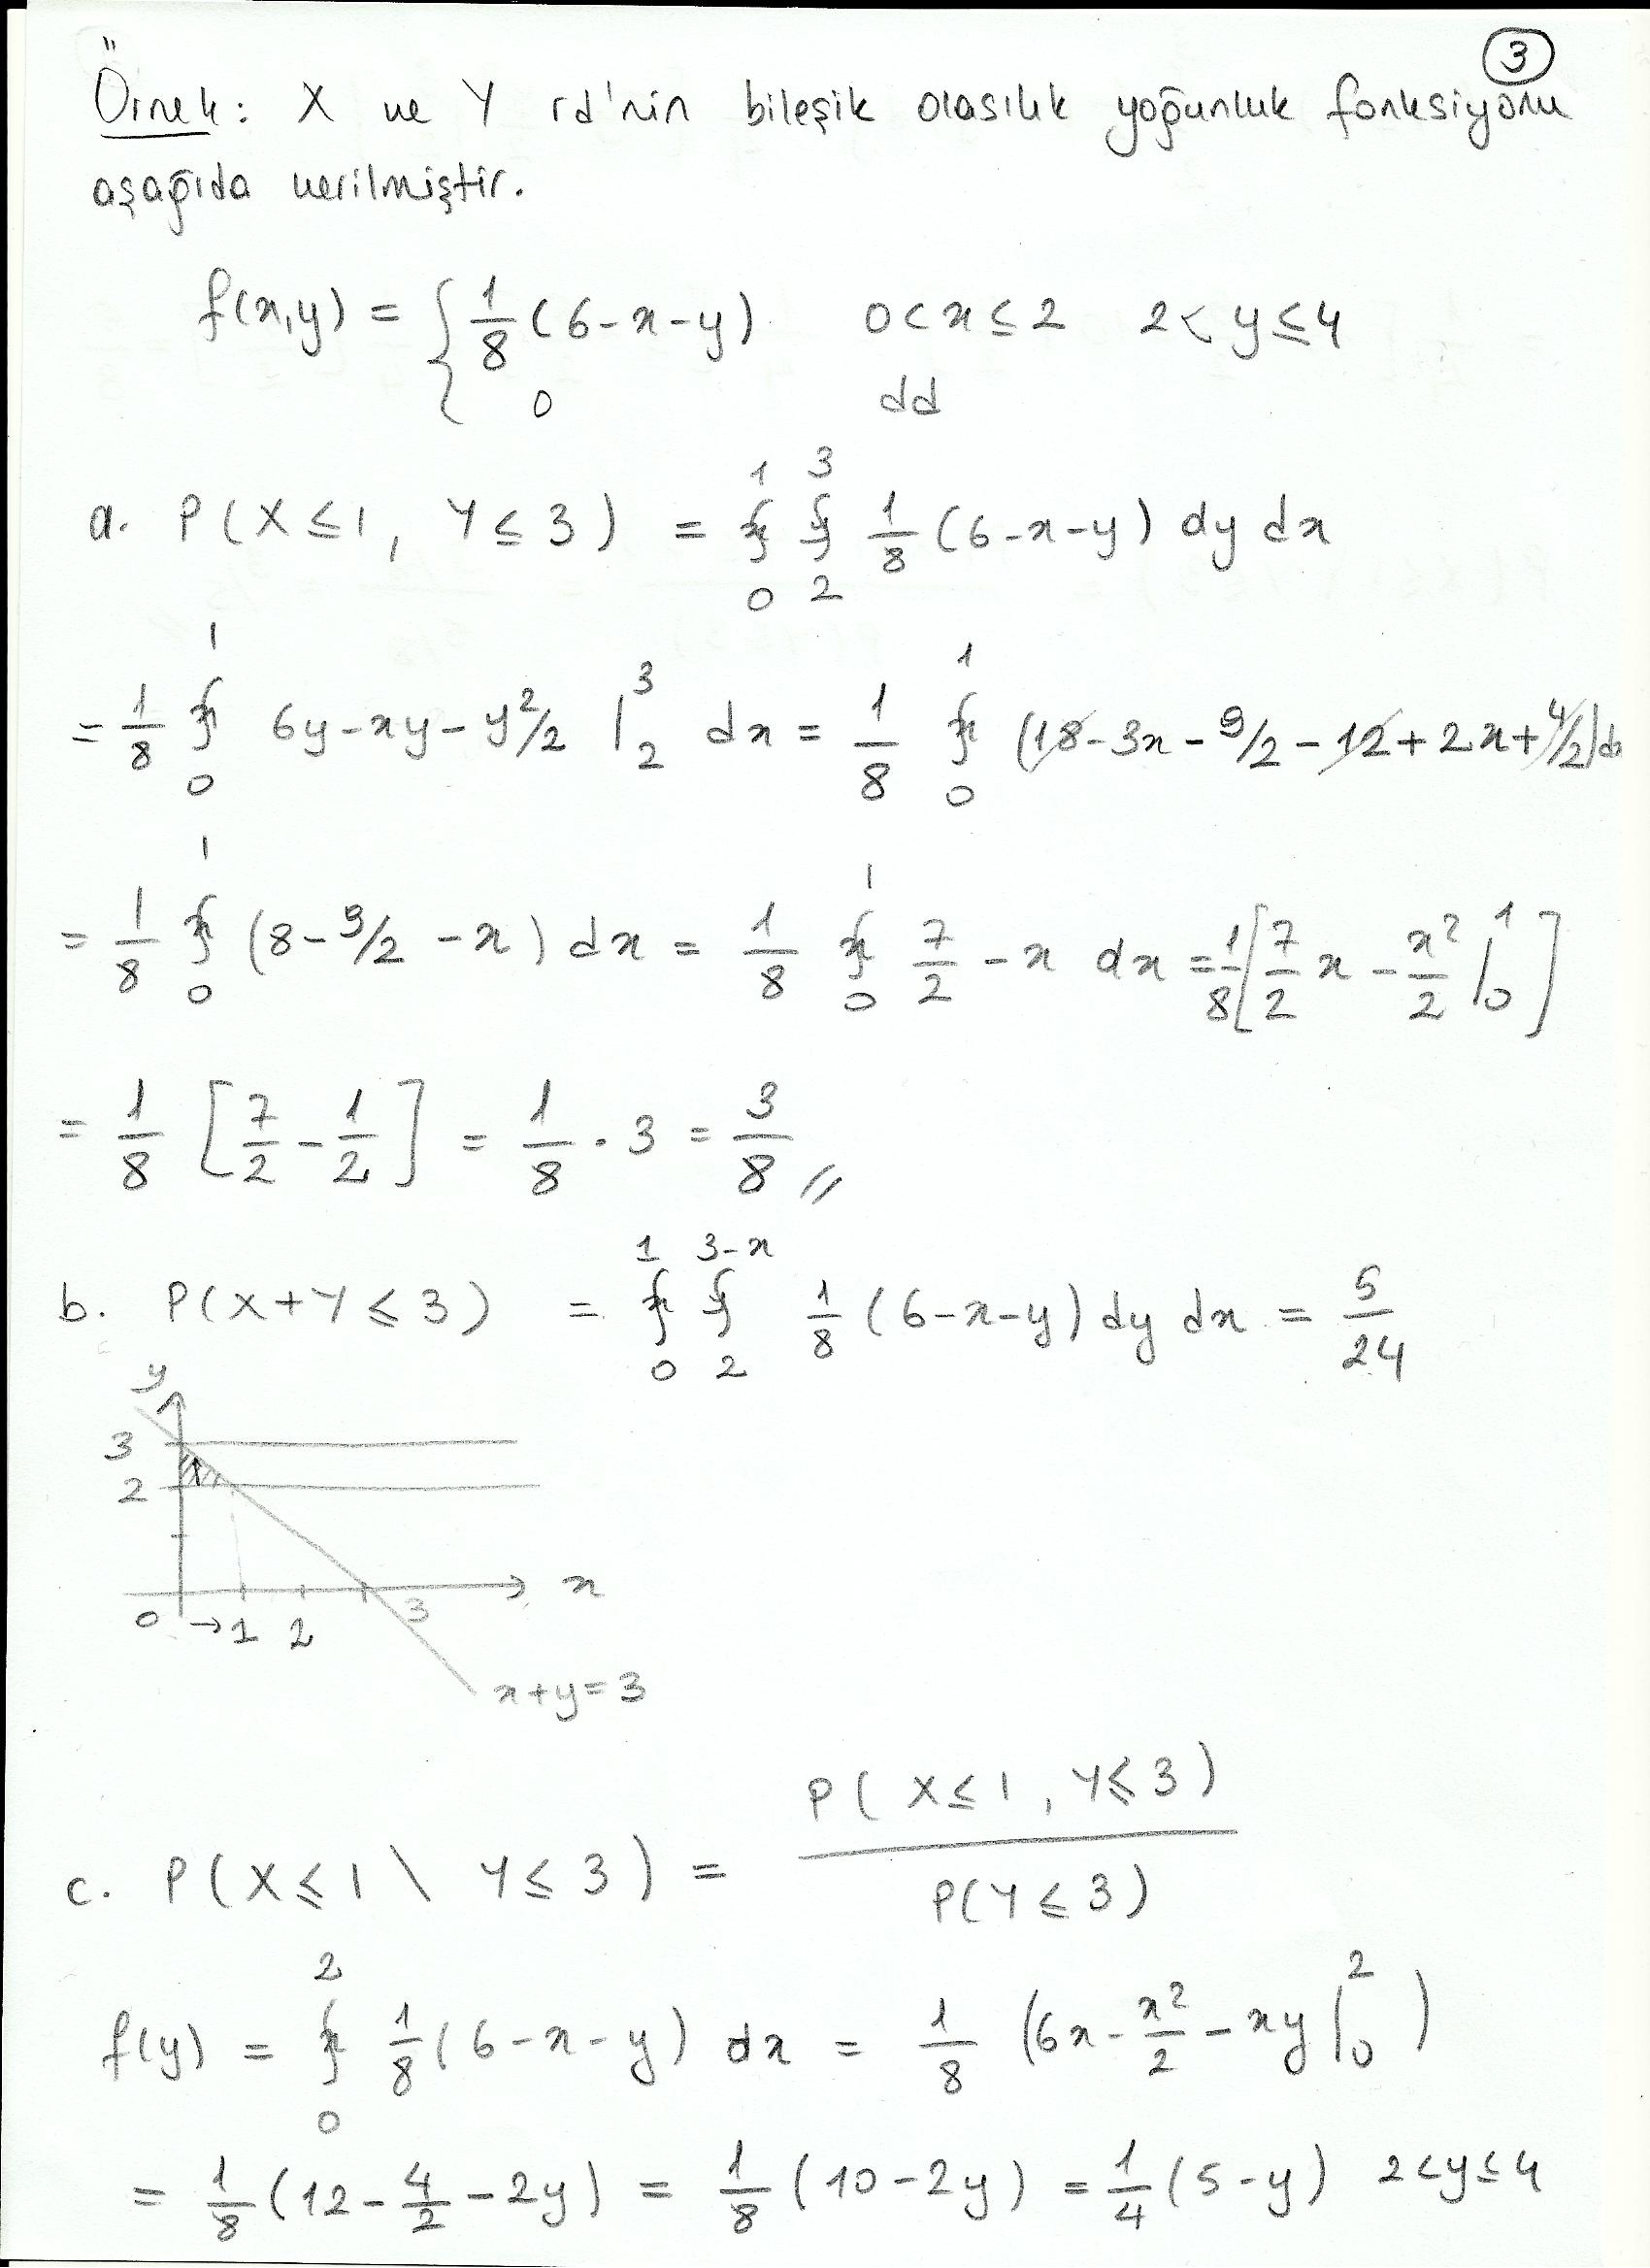 3
Örnek: X ve Y rd'nin bileşik olasılık yoğunluk fonksiyonu
aşağıda verilmiştir.
f(x,y) = { 1/8 (6-x-y) 0<x≤2 2<y≤4
0 dd
a. P(X≤1, Y≤3) = ∫_0^1 ∫_2^3 1/8 (6-x-y) dy dx
= 1/8 ∫_0^1 6y-xy-y²/2 |_2^3 dx = 1/8 ∫_0^1 (18-3x-9/2-12+2x+4/2)dx
= 1/8 ∫_0^1 (8-9/2-x) dx = 1/8 ∫_0^1 7/2 - x dx = 1/8 [7/2 x - x²/2 |_0^1]
= 1/8 [7/2 - 1/2] = 1/8 . 3 = 3/8 //
b. P(X+Y≤3) = ∫_0^1 ∫_2^{3-x} 1/8 (6-x-y) dy dx = 5/24
y
3
2
x
0 → 1 2 3
x+y=3
c. P(X≤1 \ Y≤3) = P(X≤1, Y≤3) / P(Y≤3)
f(y) = ∫_0^2 1/8 (6-x-y) dx = 1/8 (6x - x²/2 - xy |_0^2)
= 1/8 (12 - 4/2 - 2y) = 1/8 (10-2y) = 1/4 (5-y) 2<y≤4